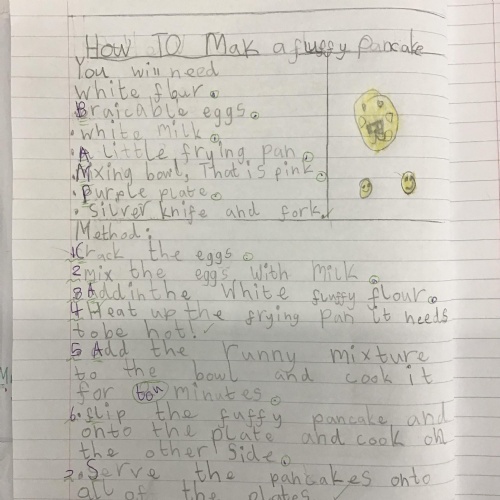 How TO Mak a fluffy Pancake
You will need
white flour.
Braicable eggs.
. white milk.
. A little frying pan.
. Mixing bowl, That is pink.
. Purple plate.
. Silver knife and fork.
Method:
1 Crack the eggs.
2 mix the eggs with milk.
3 Add in the white fluffy flour.
4 Heat up the frying pan it needs
to be hot!
5 Add the runny mixture
to the bowl and cook it
for ton minutes.
6. flip the fuffy pancake and
onto the plate and cook on
the other side.
7. Serve the pancakes onto
all of the plates